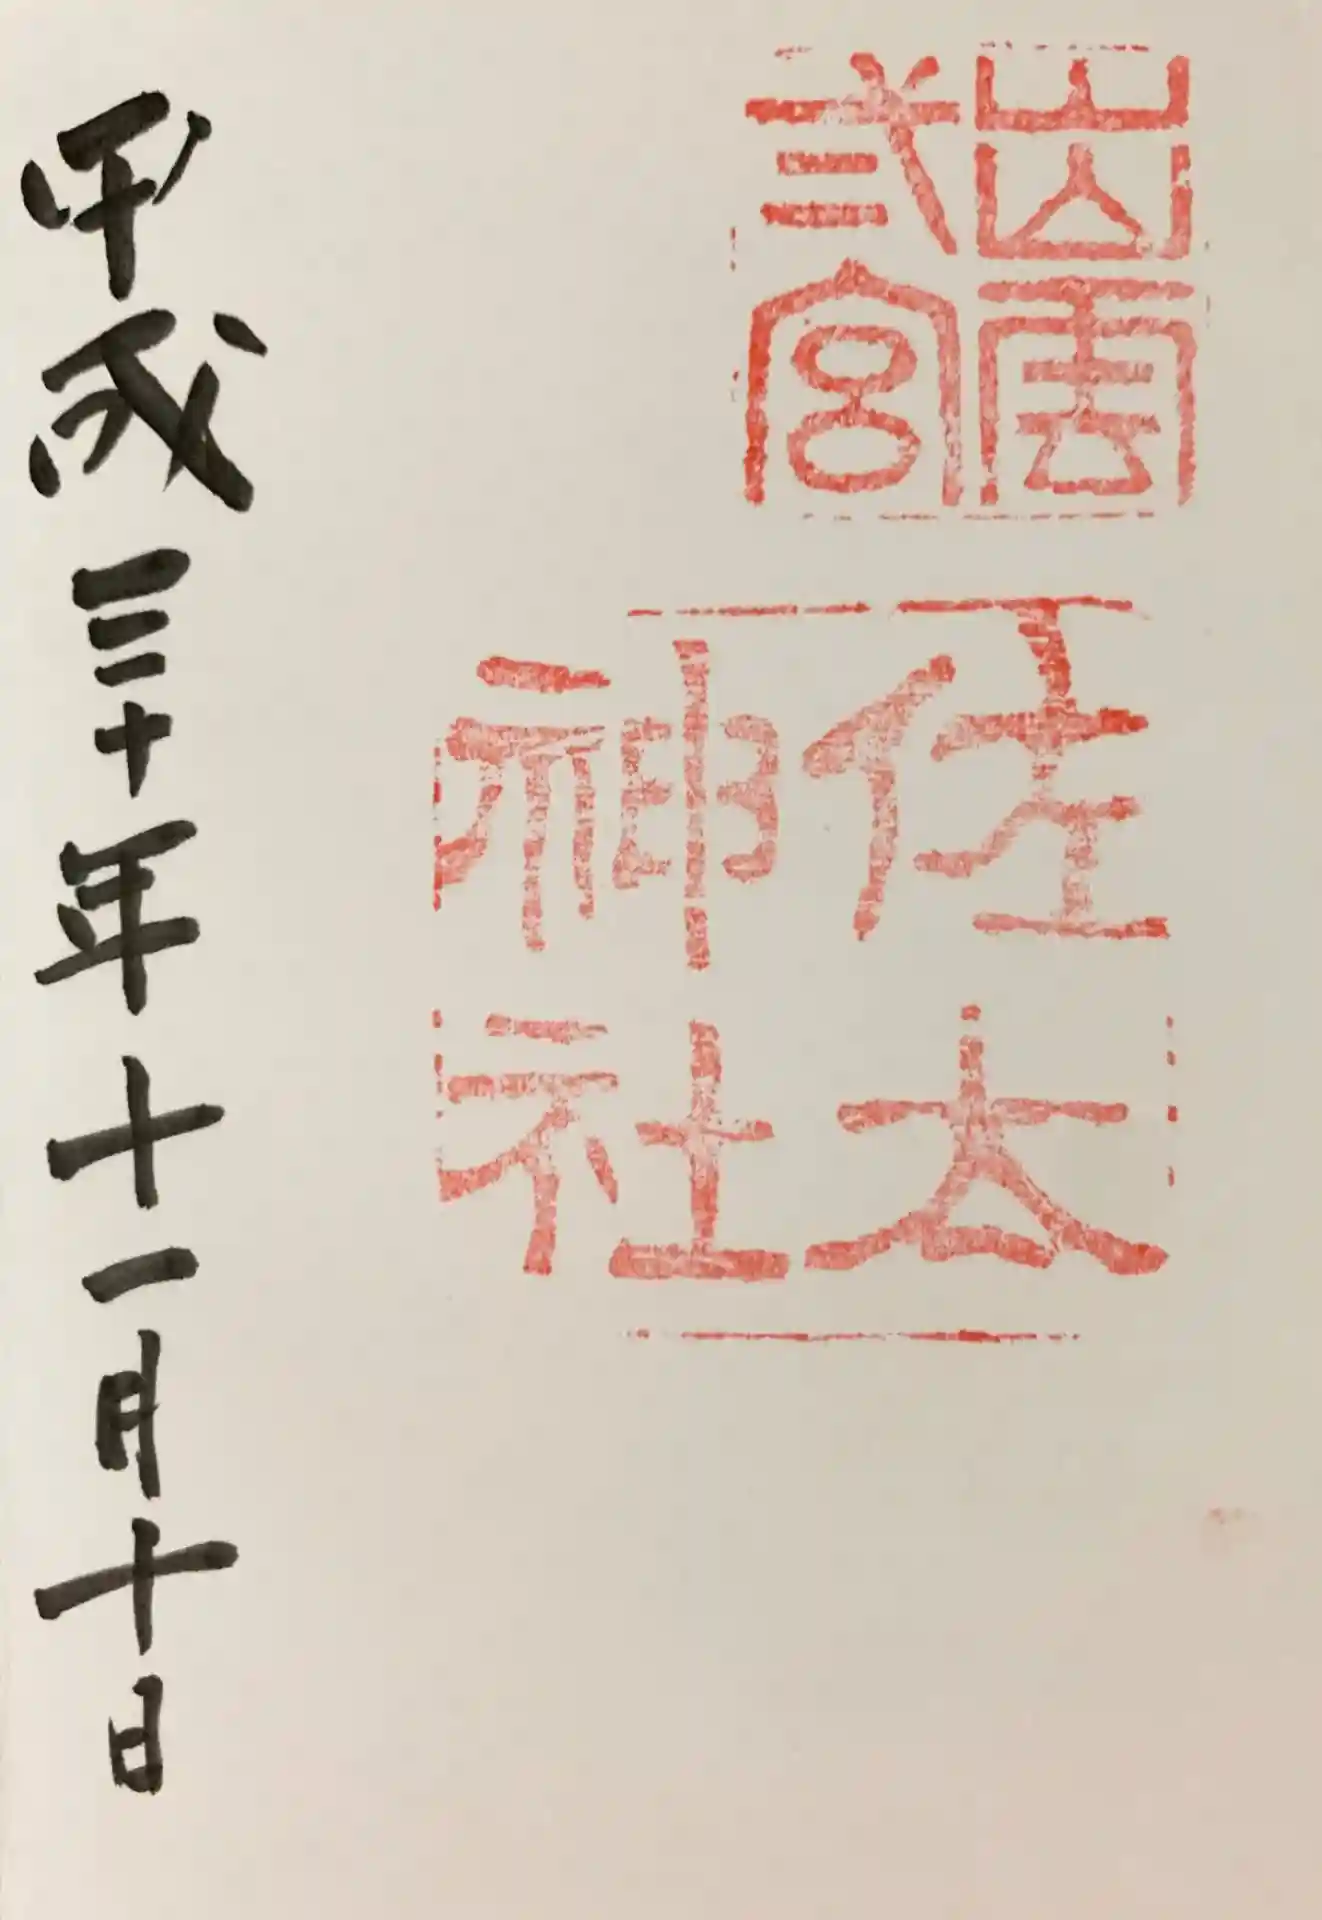 出雲
弐宮
佐太
神社
平成三十年十一月十日